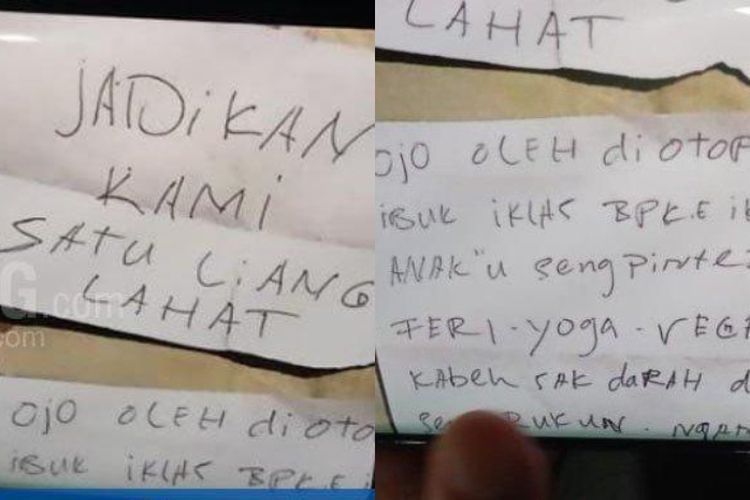 JADiKAN
KAMi
SATU LiANG
LAHAT
OJO OLEH di OTO
iBUK iKLAS BPK.E
G.com
com
LAHAT
OJO OLEH di OTOP
iBUK iKLAS BPK.E iK
ANAK"u Seng Pinte
FERI-yoga-VEGA
KABEH SAK daRAH d
RUKUN.